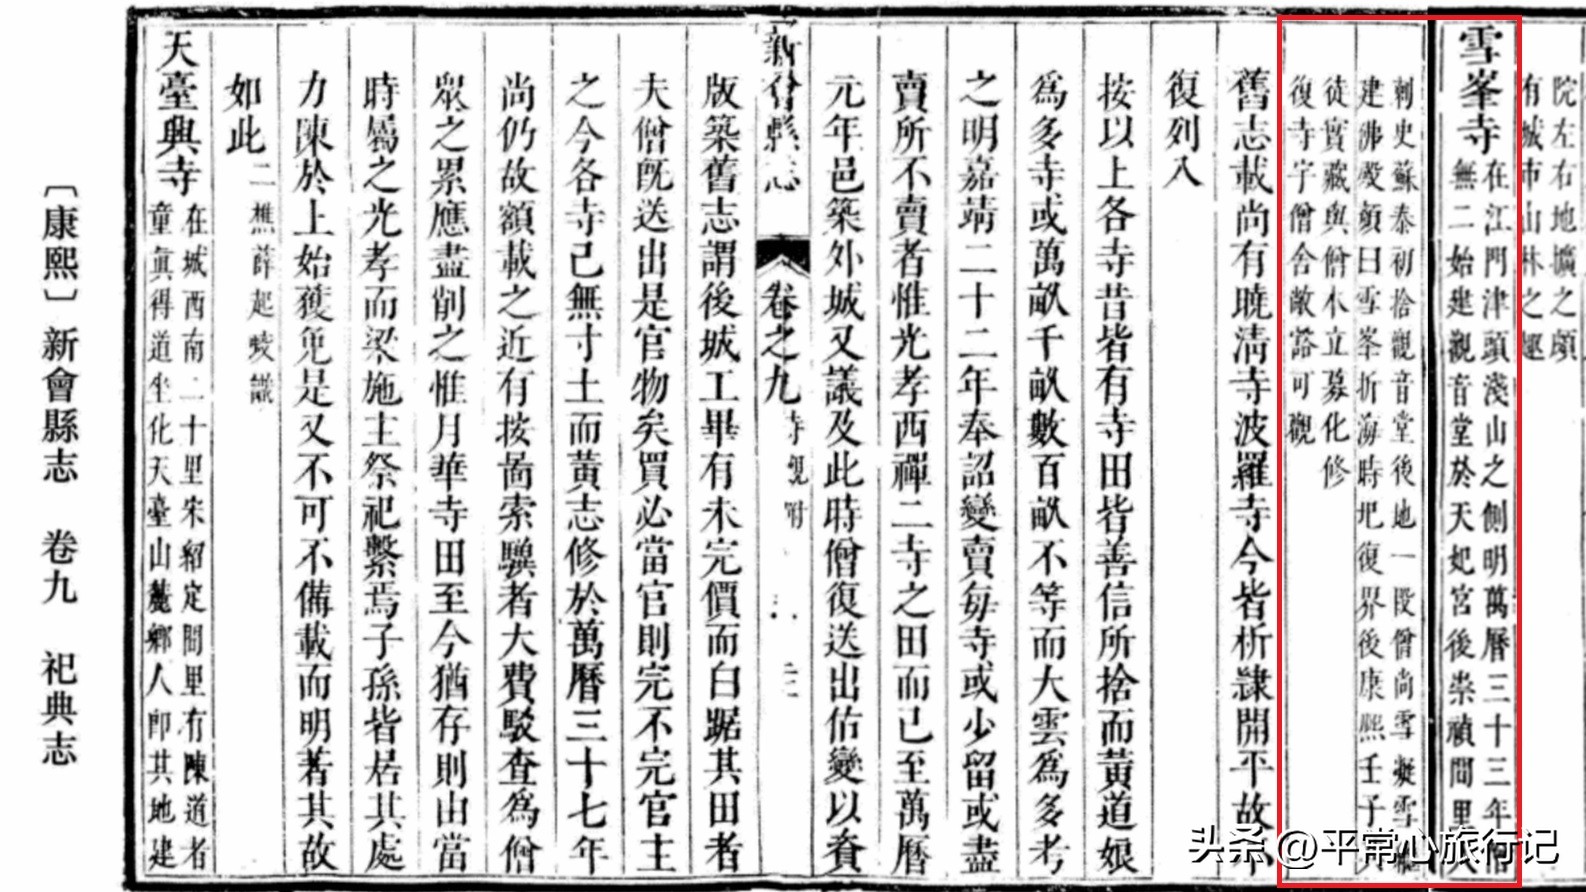 院左右地擴之頗
有城市山林之趣
雪峯寺
在江門津頭淺山之側明萬曆三十三年僧
無二始建觀音堂於天妃宮後崇禎間里
刺史蘇泰初捨觀音堂後地一段僧尚雪凝雪
建佛殿額曰雪峯折海時圯復界後康熙壬子
徒實藏與僧木立募化修
復寺宇僧舍敞豁可觀
舊志載尚有曉清寺波羅寺今皆析隷開平故不
復列入
按以上各寺昔皆有寺田皆善信所捨而黃道娘
為多寺或萬畝千畝數百畝不等而大雲為多考
之明嘉靖二十二年奉詔變賣每寺或少留或盡
賣所不賣者惟光孝西禪二寺之田而已至萬曆
元年邑築外城又議及此時僧復送出估變以資
新會縣志
卷之九
寺觀附
版築舊志謂後城工畢有未完價而白踞其田者
夫僧既送出是官物矣買必當官則完不完官主
之今各寺已無寸土而黃志修於萬曆三十七年
尚仍故額載之近有按啚索騻者大費駁查為僧
眾之累應盡削之惟月華寺田至今猶存則由當
時屬之光孝而梁施主祭祀繫焉子孫皆居其處
力陳於上始獲免是又不可不備載而明著其故
如此
二樵薛起蛟識
天臺興寺
在城西南二十里宋紹定間里有陳道者
童真得道坐化天臺山麓鄉人即其地建
〔康熙〕新會縣志 卷九 祀典志
头条 @平常心旅行记